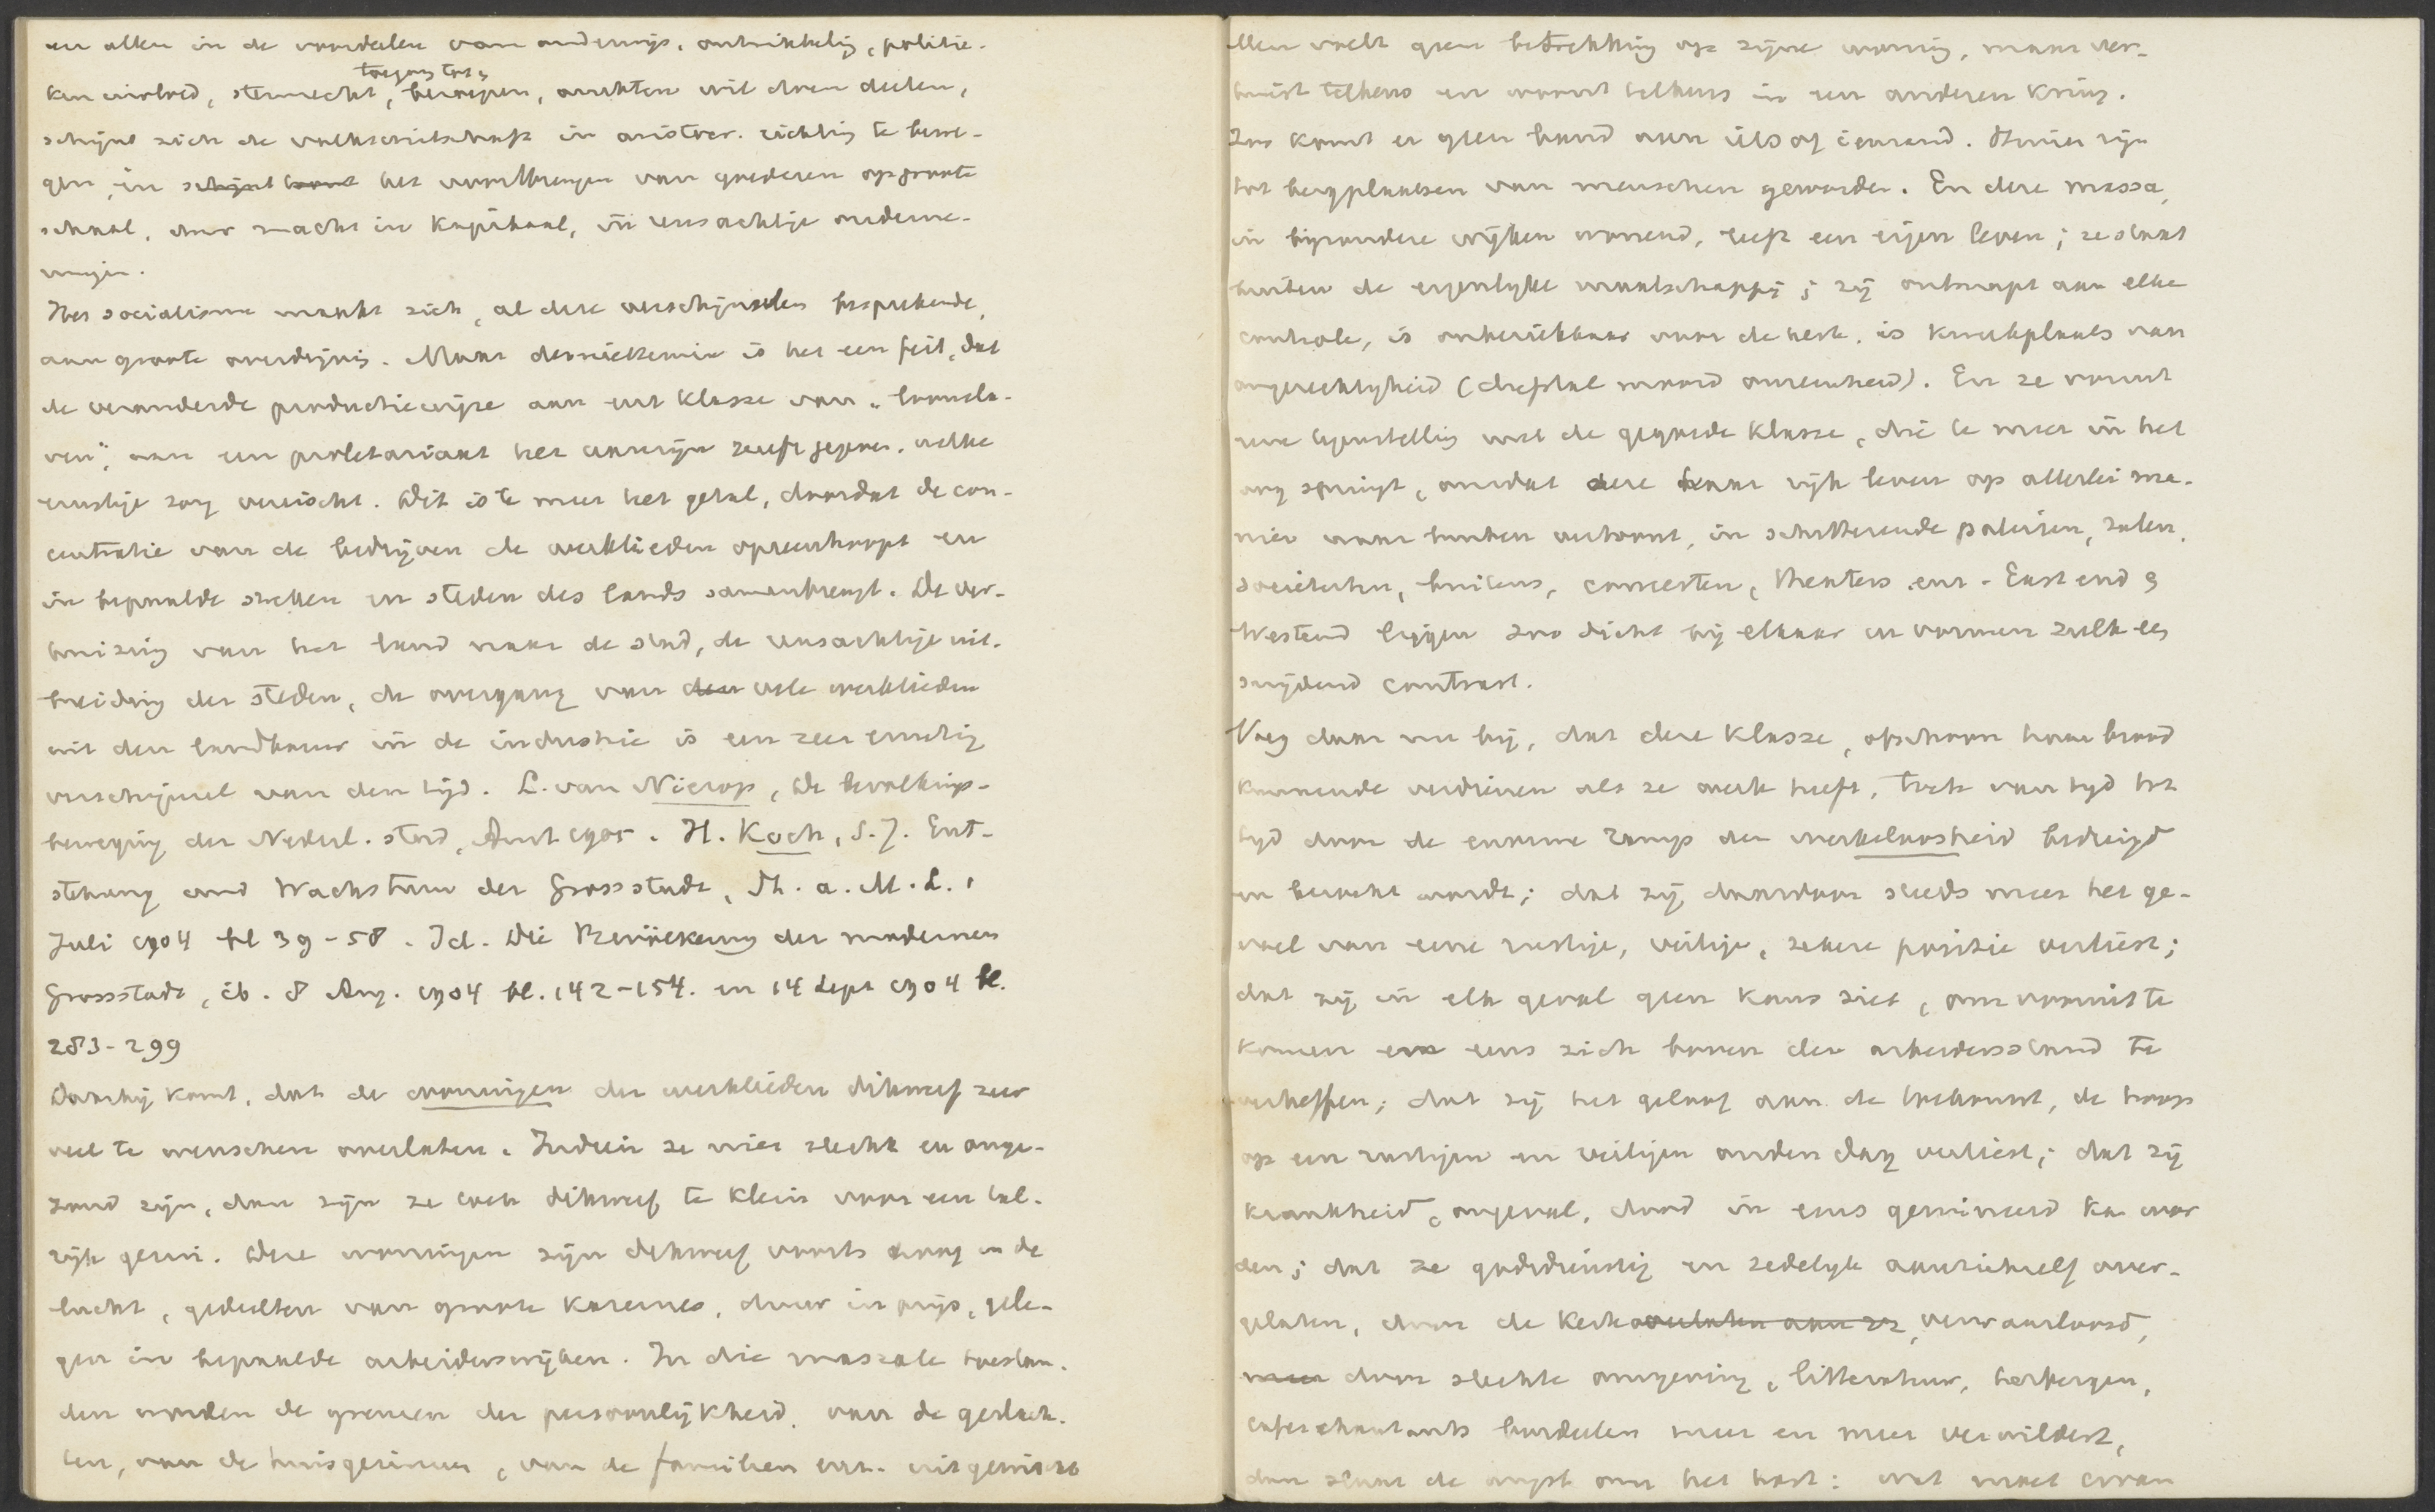 en allen in de voordeelen van onderwijs, ontwikkeling, politie-
ken invloed, stemrecht, toegang tot beroepen, ambten wil doen deelen,
schijnt zich de volkshuishoudk in aristocr. richting te bewe-
gen, in schijnt komt het voortbrengen van goederen op groote
schaal, door macht in kapitaal, in reusachtige onderne-
mingen.
Het socialisme maakt zich, al deze verschijnselen besprekende,
aan groote overdrijving. Maar desniettemin is het een feit, dat
de veranderde productiewijze aan eene klasse van "loonsla-
ven", aan een proletariaat het aanzijn heeft gegeven, welke
ernstige zorg vereischt. Dit is te meer het geval, doordat de con-
centratie van de bedrijven de werklieden opeenhoopt en
in bepaalde streken en steden des lands samenbrengt. De ver-
huizing van het land naar de stad, de reusachtige uit-
breiding der steden, de overgang van den vele werklieden
uit den landbouw in de industrie is een zeer ernstig
verschijnsel van den tijd. L. van Nierop, De bevolkings-
beweging der Nederl. stad, Amst 1905. H. Koch, S.J. Ent-
stehung und Wachstum der Grossstadt, St. a. M. L. 1
Juli 1904 bl 39-58. Id. Die Bevölkerung der modernen
Grossstadt, ib. 8 Aug. 1904 bl. 142-154. en 14 Sept 1904 bl.
283-299
Daarbij komt, dat de woningen der werklieden dikwerf zeer
veel te wenschen overlaten. Indien ze niet slecht en onge-
zond zijn, dan zijn ze toch dikwerf te klein voor een tal-
rijk gezin. Deze woningen zijn dikwerf voorts hoog in de
lucht, gedeelten van groote kazernes, duur in prijs, gele-
gen in bepaalde arbeiderswijken. In die massale toestan-
den worden de grenzen der persoonlijkheid, van de geslach-
ten, van de huisgezinnen, van de familien enz. uitgewischt
Men voelt geen betrekking op zijne woning, maar ver-
huist telkens en woont telkens in een anderen kring.
Zoo komt er geen band aan iets of iemand. Huizen zijn
tot bergplaatsen van menschen geworden. En deze massa,
in bijzondere wijken wonend, leeft een eigen leven; ze staat
buiten de eigenlijke maatschappij; zij ontsnapt aan elke
controle, is onbereikbaar voor de kerk, is kweekplaats van
ongerechtigheid (diefstal moord onreinheid). En ze vormt
eene tegenstelling met de gegoede klasse, die te meer in het
oog springt, omdat deze haar rijk leven op allerlei ma-
nier naar buiten vertoont, in schitterende paleizen, zalen,
societeiten, buitens, concerten, theaters enz. Eastend &
Westend liggen zoo dicht bij elkaar en vormen zulk een
snijdend contrast.
Voeg daar nu bij, dat deze klasse, ofschoon haar brood
kunnende verdienen als ze werk heeft, toch van tijd tot
tijd door de enorme ramp der werkeloosheid bedreigd
en bezocht wordt; dat zij daardoor steeds meer het ge-
voel van eene rustige, veilige, zekere positie verliest;
dat zij in elk geval geen kans ziet, om vooruit te
komen en eens zich boven den arbeidersstand te
verheffen; dat zij het geloof aan de toekomst, de hoop
op een rustigen en veiligen ouden dag verliest; dat zij
krankheid, ongeval, dood in eens geruineerd kan wor
den; dat ze godsdienstig en zedelijk aan zichzelf over-
gelaten, door de kerk overlaten aan zz, verwaarloosd,
meer door slechte omgeving, litteratuur, herbergen,
café chantants bordeelen meer en meer verwildert,
dan slaat de angst om het hart: wat moet ervan